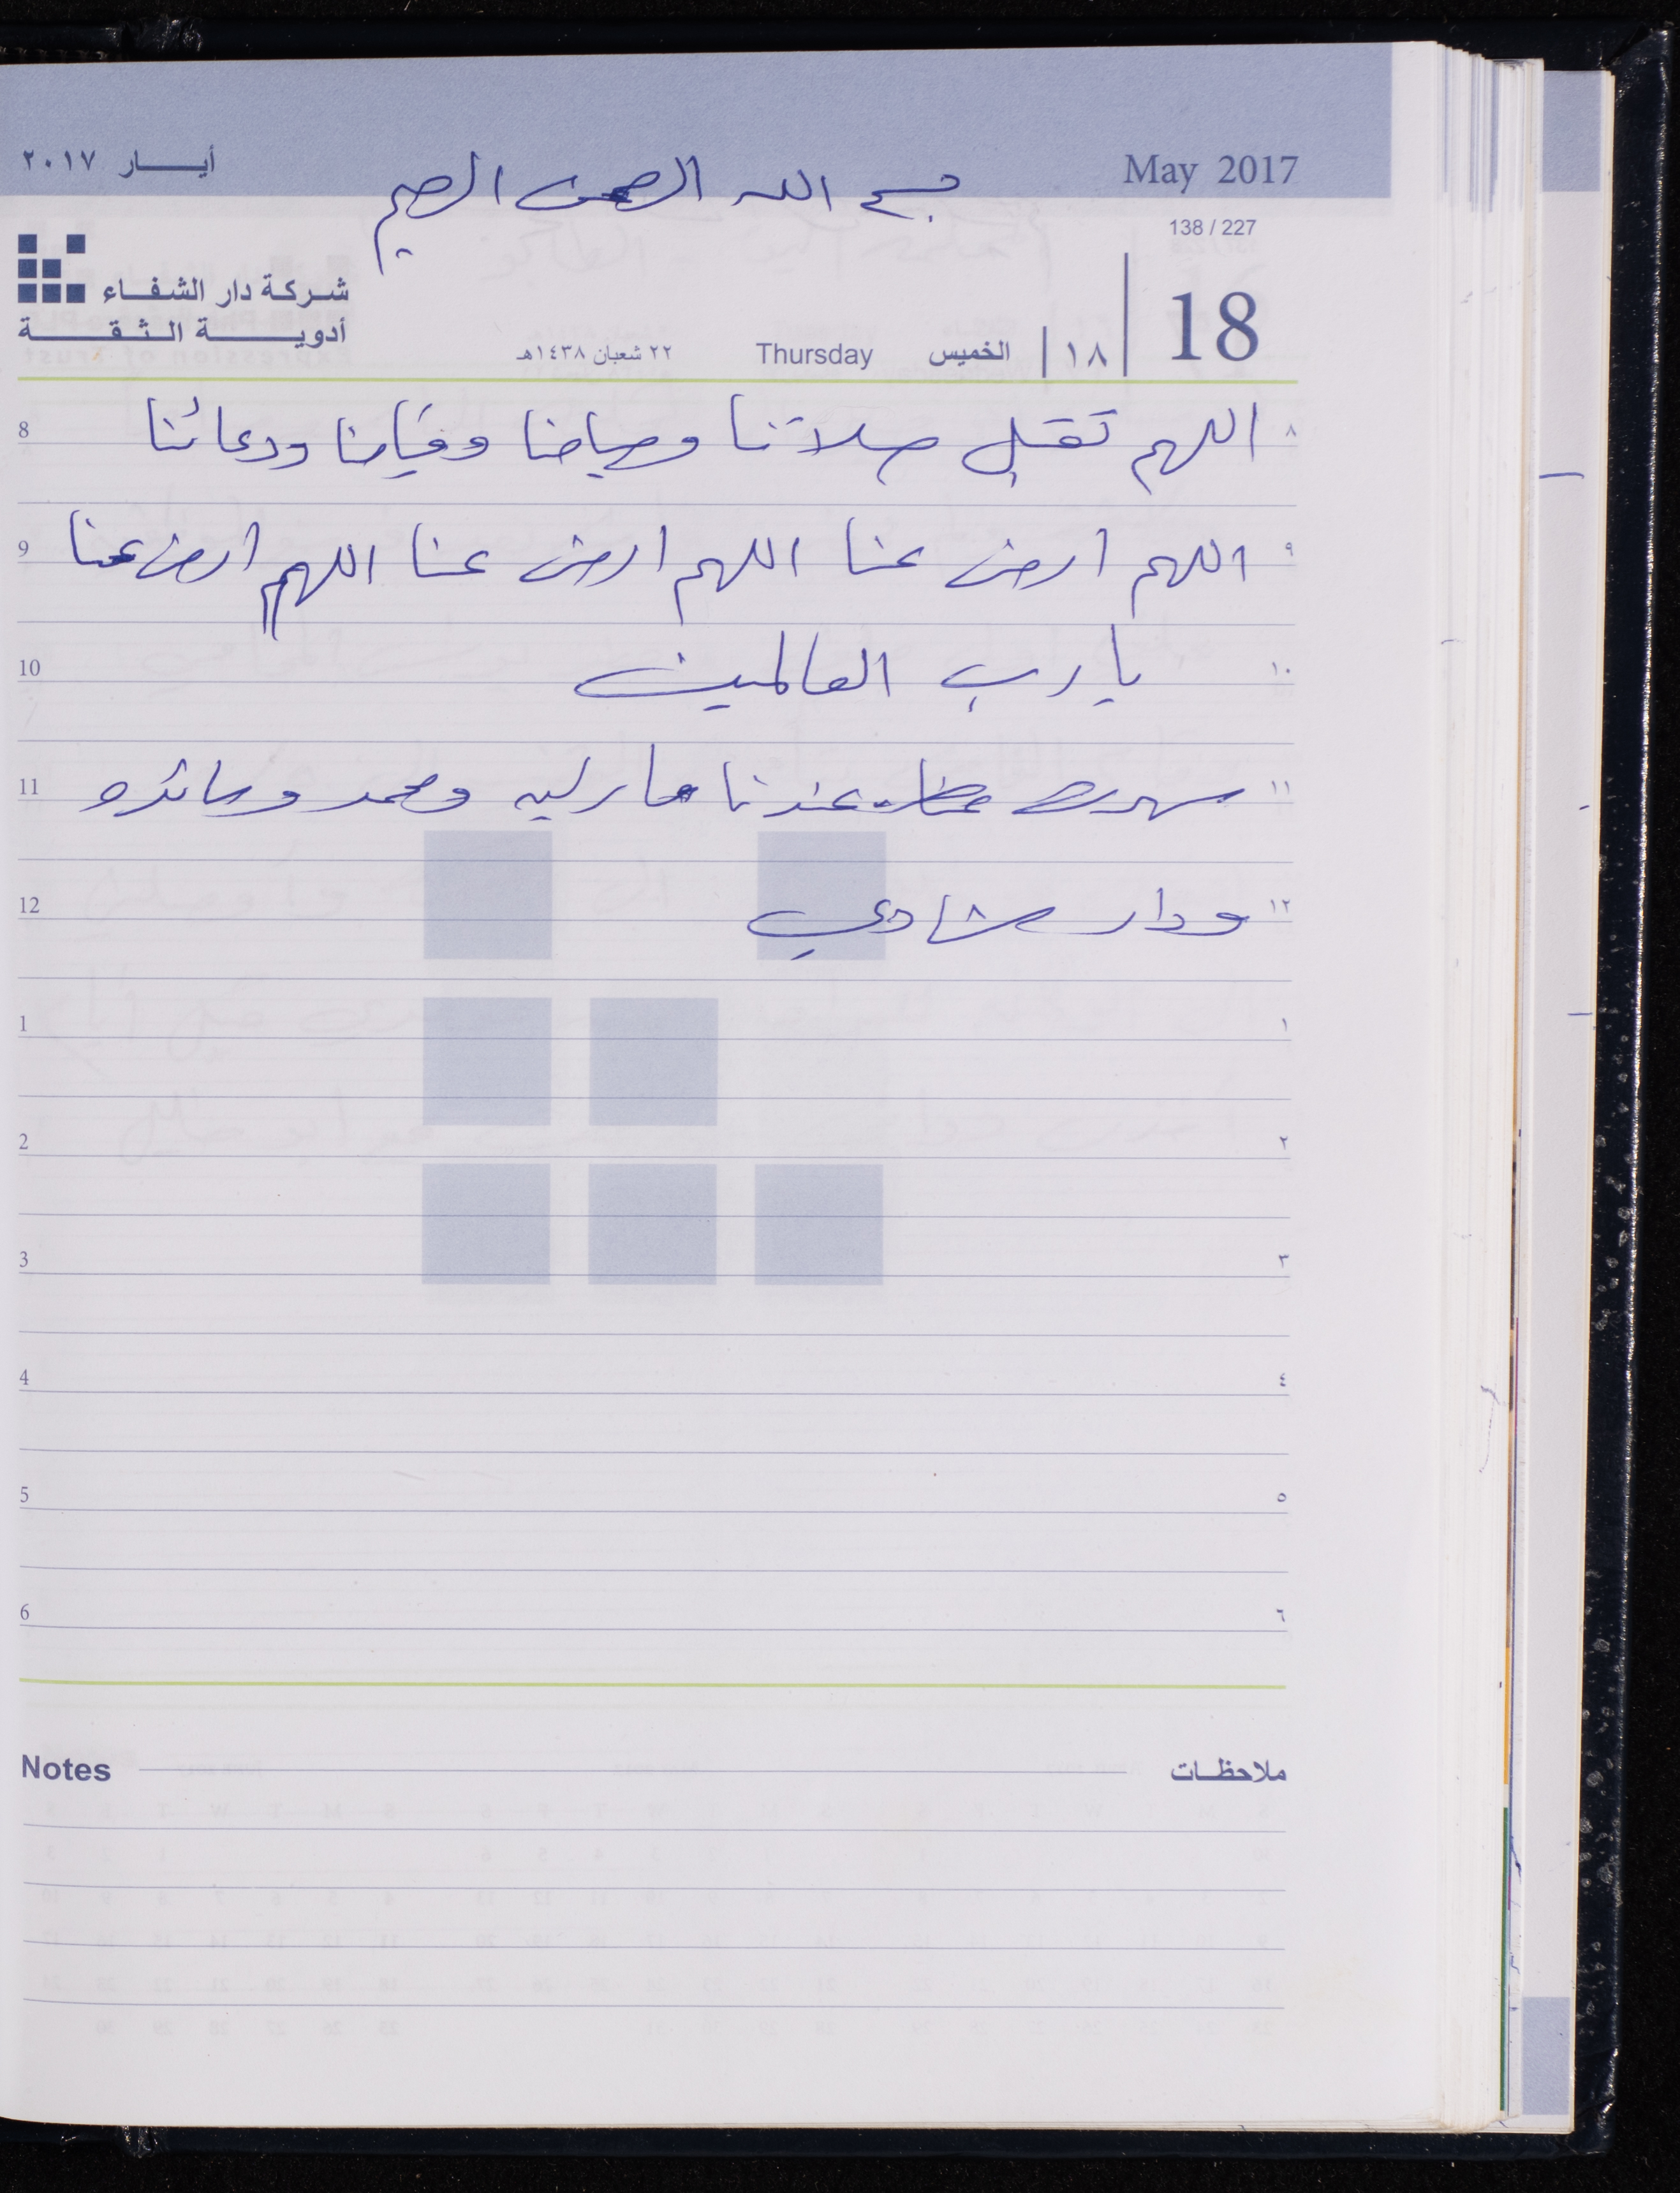 May 2017
أيـــار ٢٠١٧
بسم الله الرحمن الرحيم
138 / 227
شركة دار الشفاء
أدوية الثقة
18
١٨ الخميس Thursday ٢٢ شعبان ١٤٣٨هـ
8 اللهم تقبل صلاتنا وصيامنا وقيامنا ودعائنا ٨
9 اللهم ارض عنا اللهم ارض عنا اللهم ارض عنا ٩
10 يا رب العالمين ١٠
11 عندنا ومحمد ١١
12 ودار شادي ١٢
1 ١
2 ٢
3 ٣
4 ٤
5 ٥
6 ٦
Notes ملاحظات